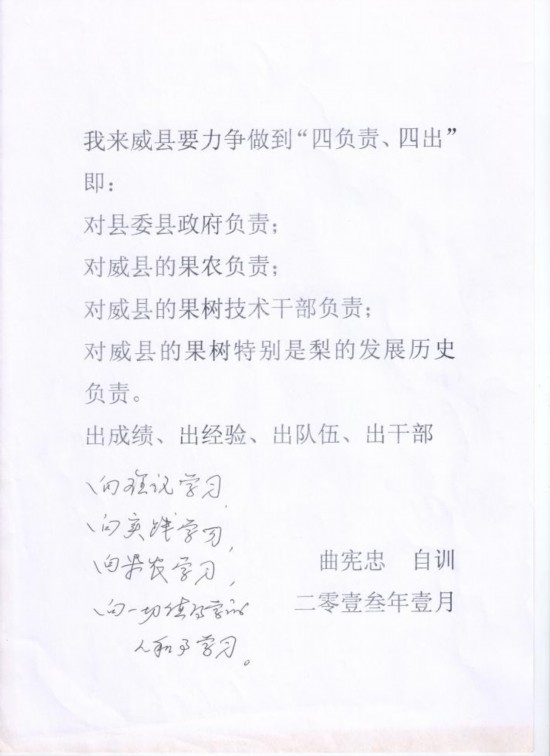 我来威县要力争做到“四负责、四出”
即：
对县委县政府负责；
对威县的果农负责；
对威县的果树技术干部负责；
对威县的果树特别是梨的发展历史
负责。
出成绩、出经验、出队伍、出干部
向理论学习，
向实践学习，
向果农学习，
向一切值得学的
人和事学习。
曲宪忠 自训
二零壹叁年壹月